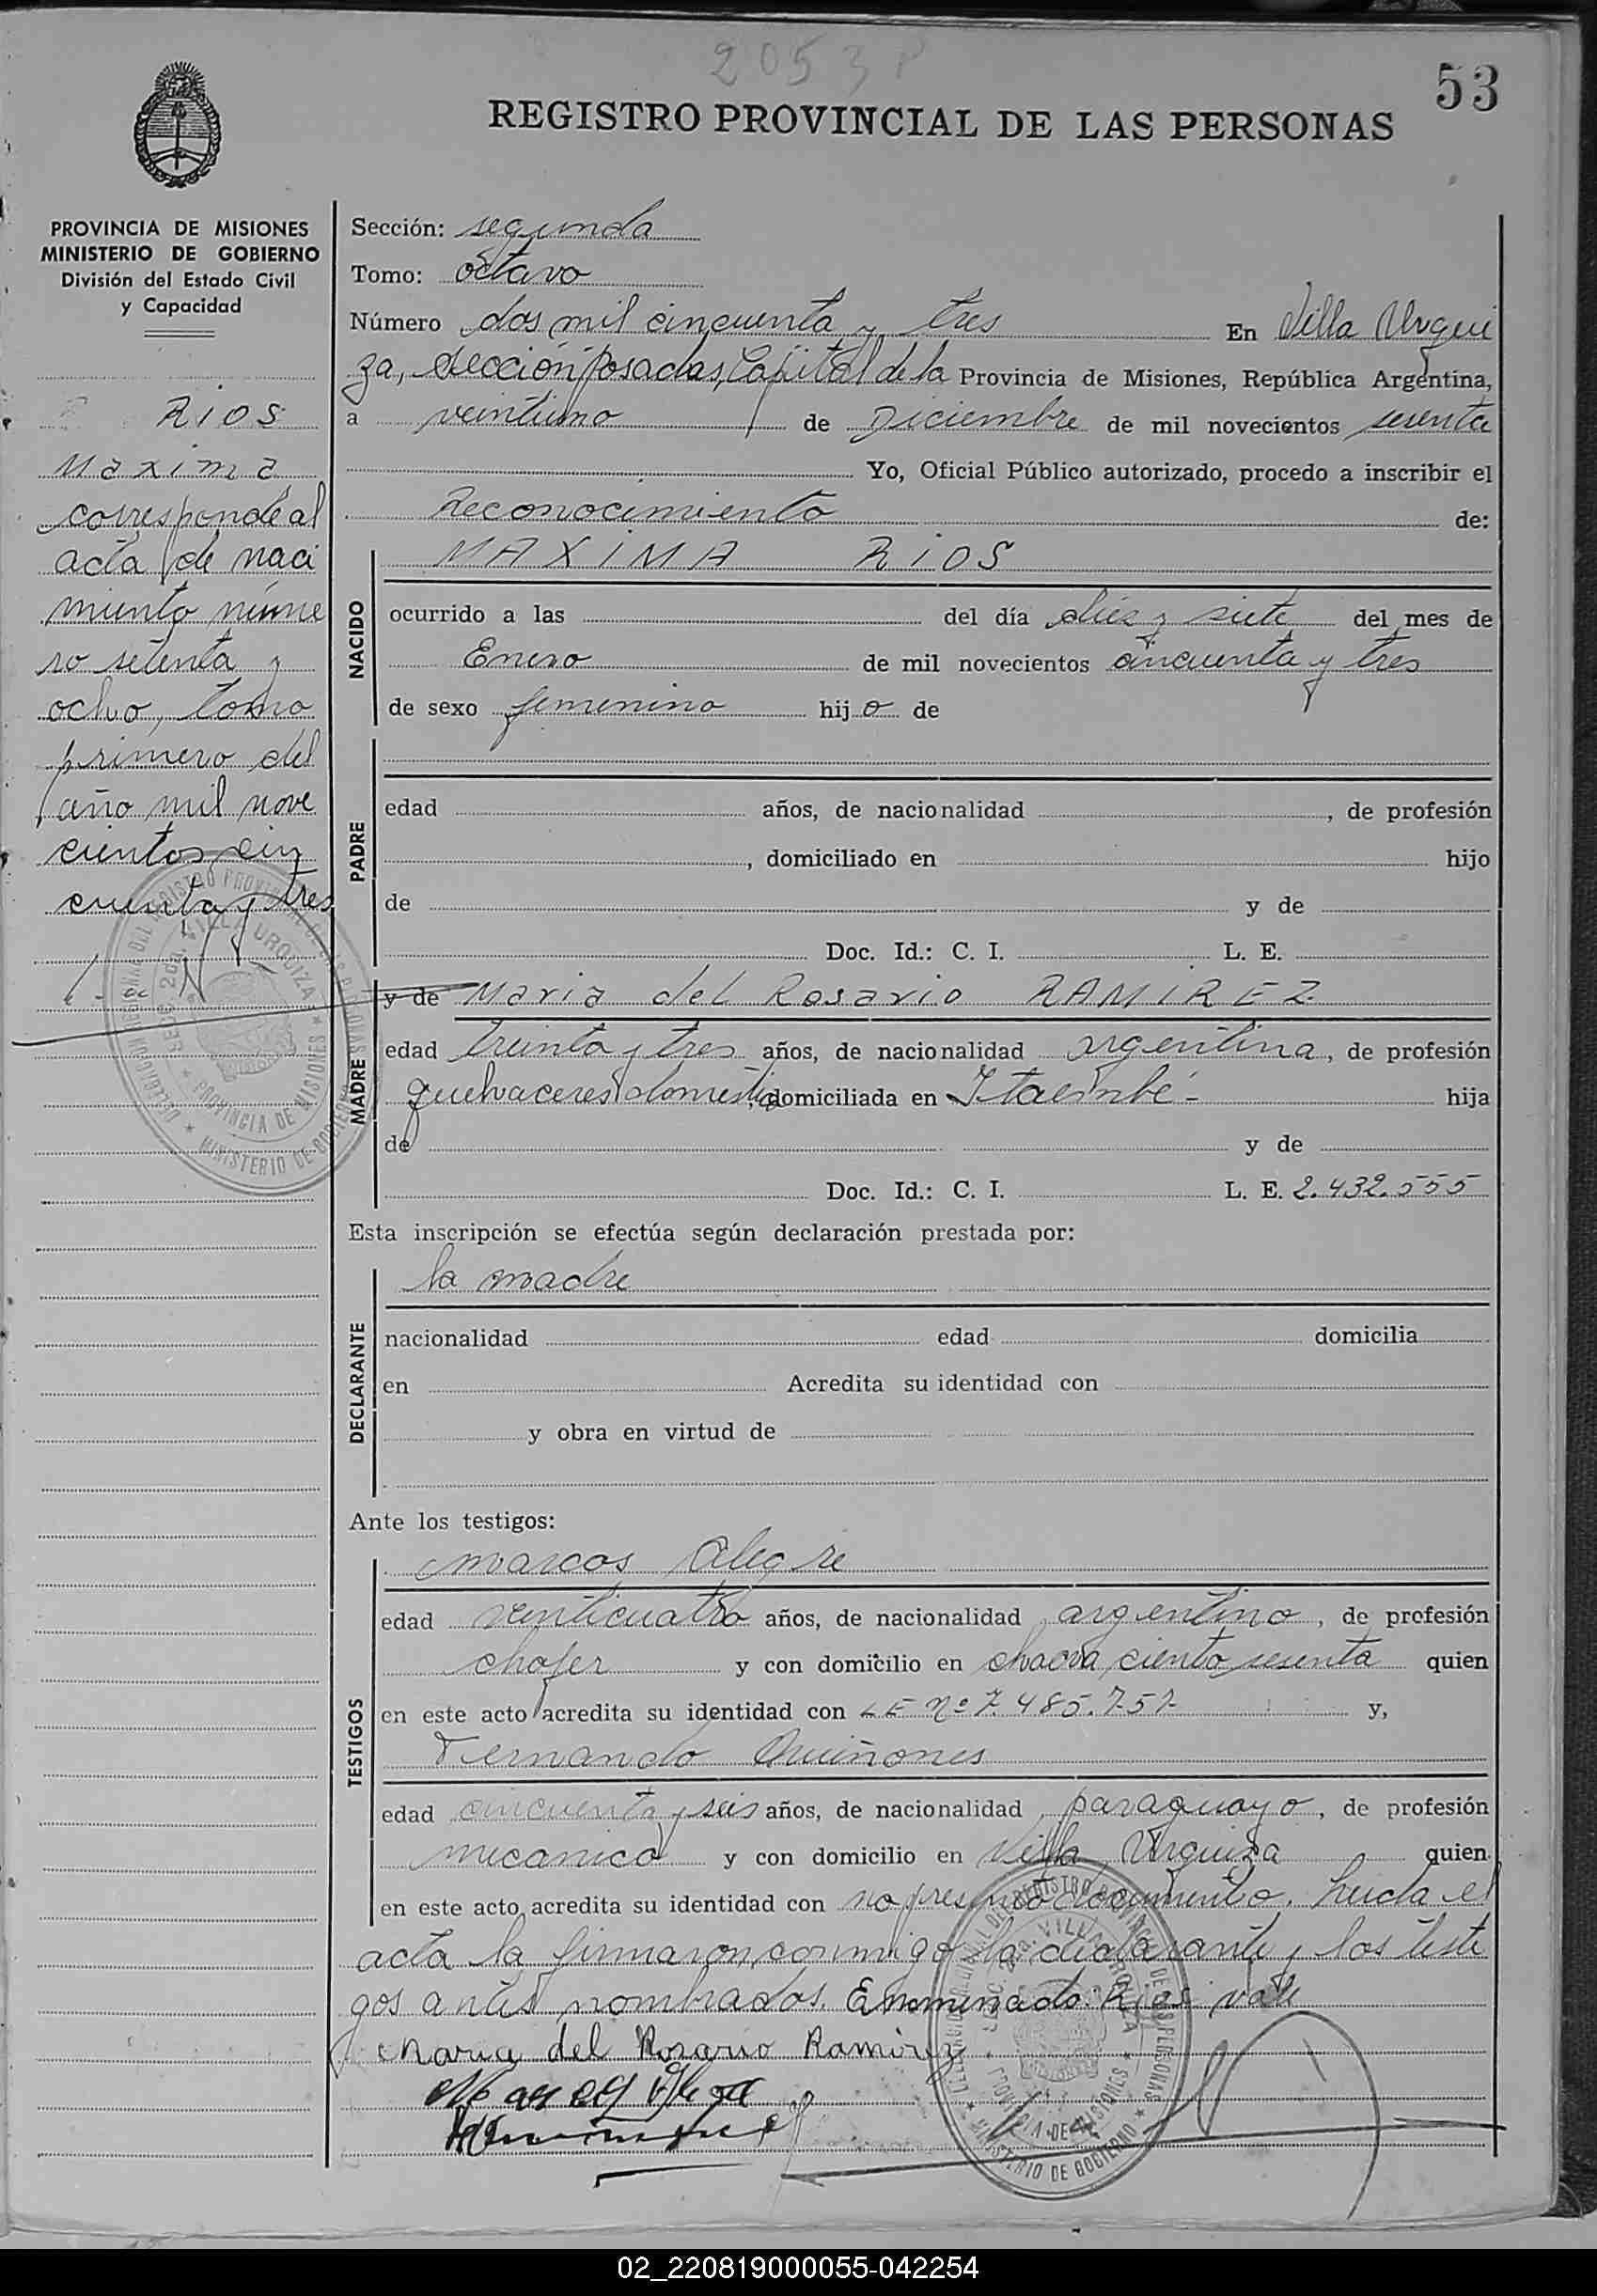 2053 P
53
REGISTRO PROVINCIAL DE LAS PERSONAS
PROVINCIA DE MISIONES
MINISTERIO DE GOBIERNO
División del Estado Civil
y Capacidad
RIOS
Maxima
corresponde al
acta de naci
miento núme
ro setenta y
ocho, tomo
primero del
año mil nove
cientos cin
cuenta y tres
Sección: segunda
Tomo: octavo
Número dos mil cincuenta y tres En Villa Urqui
za, sección Posadas, Capital de la Provincia de Misiones, República Argentina,
a veintiuno de Diciembre de mil novecientos sesenta
Yo, Oficial Público autorizado, procedo a inscribir el
Reconocimiento de:
NACIDO
MAXIMA RIOS
ocurrido a las del día diez y siete del mes de
Enero de mil novecientos cincuenta y tres
de sexo femenino hijo de
PADRE
edad años, de nacionalidad , de profesión
, domiciliado en hijo
de y de
Doc. Id.: C. I. L. E.
MADRE
y de Maria del Rosario RAMIREZ
edad treinta y tres años, de nacionalidad argentina, de profesión
quehaceres domestico domiciliada en Itaembé - hija
de y de
Doc. Id.: C. I. L. E. 2.432.555
Esta inscripción se efectúa según declaración prestada por:
DECLARANTE
la madre
nacionalidad edad domicilia
en Acredita su identidad con
y obra en virtud de
Ante los testigos:
TESTIGOS
Marcos Alegre
edad veinticuatro años, de nacionalidad argentino, de profesión
chofer y con domicilio en chacra ciento sesenta quien
en este acto acredita su identidad con LE Nº 7.485.757 y,
Fernando Quiñones
edad cincuenta y seis años, de nacionalidad paraguayo, de profesión
mecanico y con domicilio en Villa Urquiza quien
en este acto acredita su identidad con no presentó documento. Leida el
acta la firmaron conmigo la declarante y los testi
gos antes nombrados. Enmendado: Rios vale
Maria del Rosario Ramirez
02_220819000055-042254